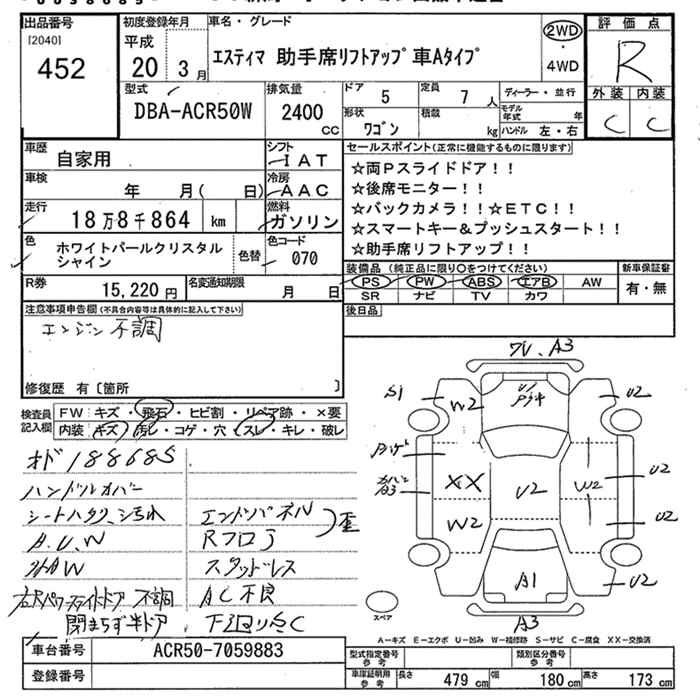 出品番号 初度登録年月 車名・グレード 評価点
[2040] 平成 エスティマ 助手席リフトアップ 車Aタイプ 2WD R
452 20年 3月 4WD
型式 排気量 ドア 5 定員 7人 ディーラー・並行 外装 内装
DBA-ACR50W 2400cc 形状 ワゴン 積載 kg モデル年式 年 C C
ハンドル 左・右
車歴 自家用 シフト IAT セールスポイント(正常に機能するものに限ります)
車検 年 月( 日) 冷房 AAC ☆両Pスライドドア!!
走行 18万8千864 km 燃料 ガソリン ☆後席モニター!!
☆バックカメラ!!☆ETC!!
☆スマートキー&プッシュスタート!!
☆助手席リフトアップ!!
色 ホワイトパールクリスタルシャイン 色替 色コード 070
装備品 (純正品に限り○をつけてください) 新車保証書
PS PW ABS エアB AW 有・無
SR ナビ TV カワ
R券 15,220円 名変通知期限 月 日
後日品
注意事項申告欄(不具合内容等は具体的に記入して下さい)
エンジン不調
修復歴 有〔箇所 〕
検査員記入欄 FW キズ・飛石・ヒビ割・リペア跡・×要
内装 キズ・汚レ・コゲ・穴・スレ・キレ・破レ
オド188685
ハンドルカバー
シートハタク、シミ汚れ エンドパネル 歪
A.U.W Rフロア
スタッドレス
右Rパワースライドドア 不調 AC不良
閉まらず半ドア 下廻りサC
A3
S1 W2 U2
XX U2 W2 U2
A3 W2 U2
A1 U2
A3
スペア
A-キズ E-エクボ U-凹み W-補修跡 S-サビ C-腐食 XX-交換済
車台番号 ACR50-7059883 型式指定番号 参考 類別区分番号 参考
登録番号 車庫証明用 参考 長さ 479cm 幅 180cm 高さ 173cm